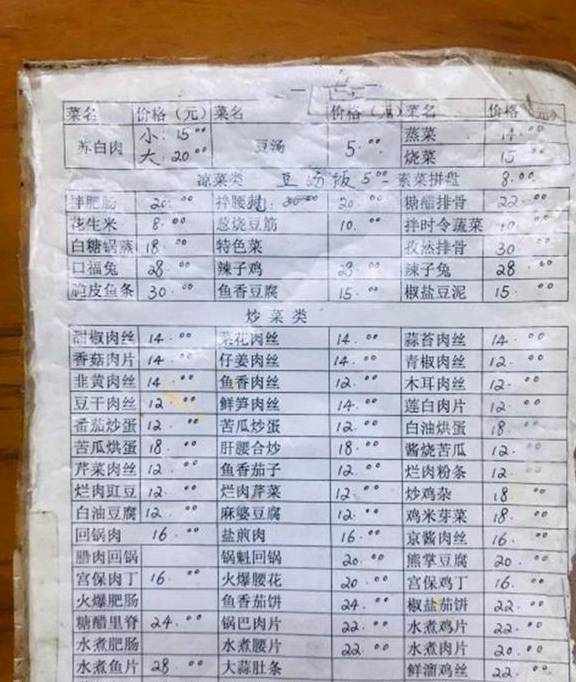 菜名 价格（元） 菜名 价格（元） 菜名 价格（元）
苏白肉 小：15.00 大：20.00 豆汤 5.00 蒸菜 14.00
烧菜 15.00
凉菜类 豆汤饭 5.00 素菜拼盘 8.00
拌肥肠 20.00 拌腰 20.00 糖醋排骨 22.00
花生米 8.00 葱烧豆筋 10.00 拌时令蔬菜
白糖锅蒸 18.00 特色菜 孜然排骨 30.00
口福兔 28.00 辣子鸡 28.00 辣子兔 28.00
脆皮鱼条 30.00 鱼香豆腐 15.00 椒盐豆泥 15.00
炒菜类
甜椒肉丝 14.00 花肉丝 14.00 蒜苔肉丝 14.00
香菇肉片 14.00 仔姜肉丝 14.00 青椒肉丝 12.00
韭黄肉丝 14.00 鱼香肉丝 12.00 木耳肉丝 12.00
豆干肉丝 12.00 鲜笋肉丝 14.00 莲白肉片 12.00
番茄炒蛋 12.00 苦瓜炒蛋 12.00 白油烘蛋 18.00
苦瓜烘蛋 18.00 肝腰合炒 18.00 酱烧苦瓜 12.00
芹菜肉丝 12.00 鱼香茄子 12.00 烂肉粉条 12.00
烂肉豇豆 12.00 烂肉芹菜 12.00 炒鸡杂 18.00
白油豆腐 12.00 麻婆豆腐 12.00 鸡米芽菜 18.00
回锅肉 16.00 盐煎肉 16.00 京酱肉丝 16.00
腊肉回锅 锅魁回锅 20.00 熊掌豆腐 20.00
宫保肉丁 16.00 火爆腰花 20.00 宫保鸡丁 16.00
火爆肥肠 鱼香茄饼 24.00 椒盐茄饼 22.00
糖醋里脊 24.00 锅巴肉片 22.00 水煮鸡片 22.00
水煮肥肠 水煮腰片 22.00 水煮肉片 20.00
水煮鱼片 28.00 大蒜肚条 鲜溜鸡丝 22.00